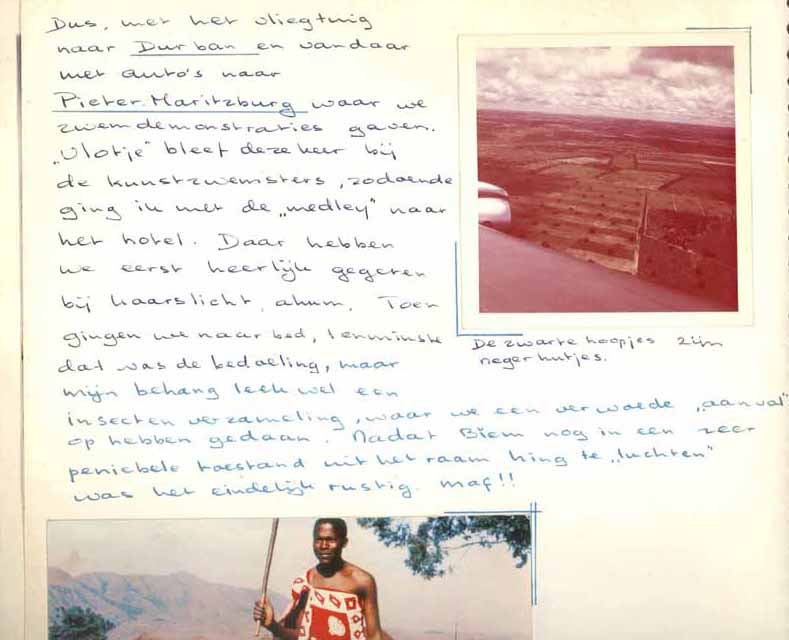 Dus, met het vliegtuig
naar Durban en vandaar
met auto's naar
Pieter-Maritzburg waar we
zwemdemonstraties gaven.
„Vlotje" bleef deze keer bij
de kunstzwemsters, zodoende
ging ik met de „medley" naar
het hotel. Daar hebben
we eerst heerlijk gegeten
bij kaarslicht, ahum. Toen
gingen we naar bed, tenminste
dat was de bedoeling, maar
mijn behang leek wel een
insecten verzameling, waar we een verwoede „aanval"
op hebben gedaan. Nadat Biem nog in een zeer
peniebele toestand uit het raam hing te „luchten"
was het eindelijk rustig. maf!!
De zwarte hoopjes zijn
negerhutjes.